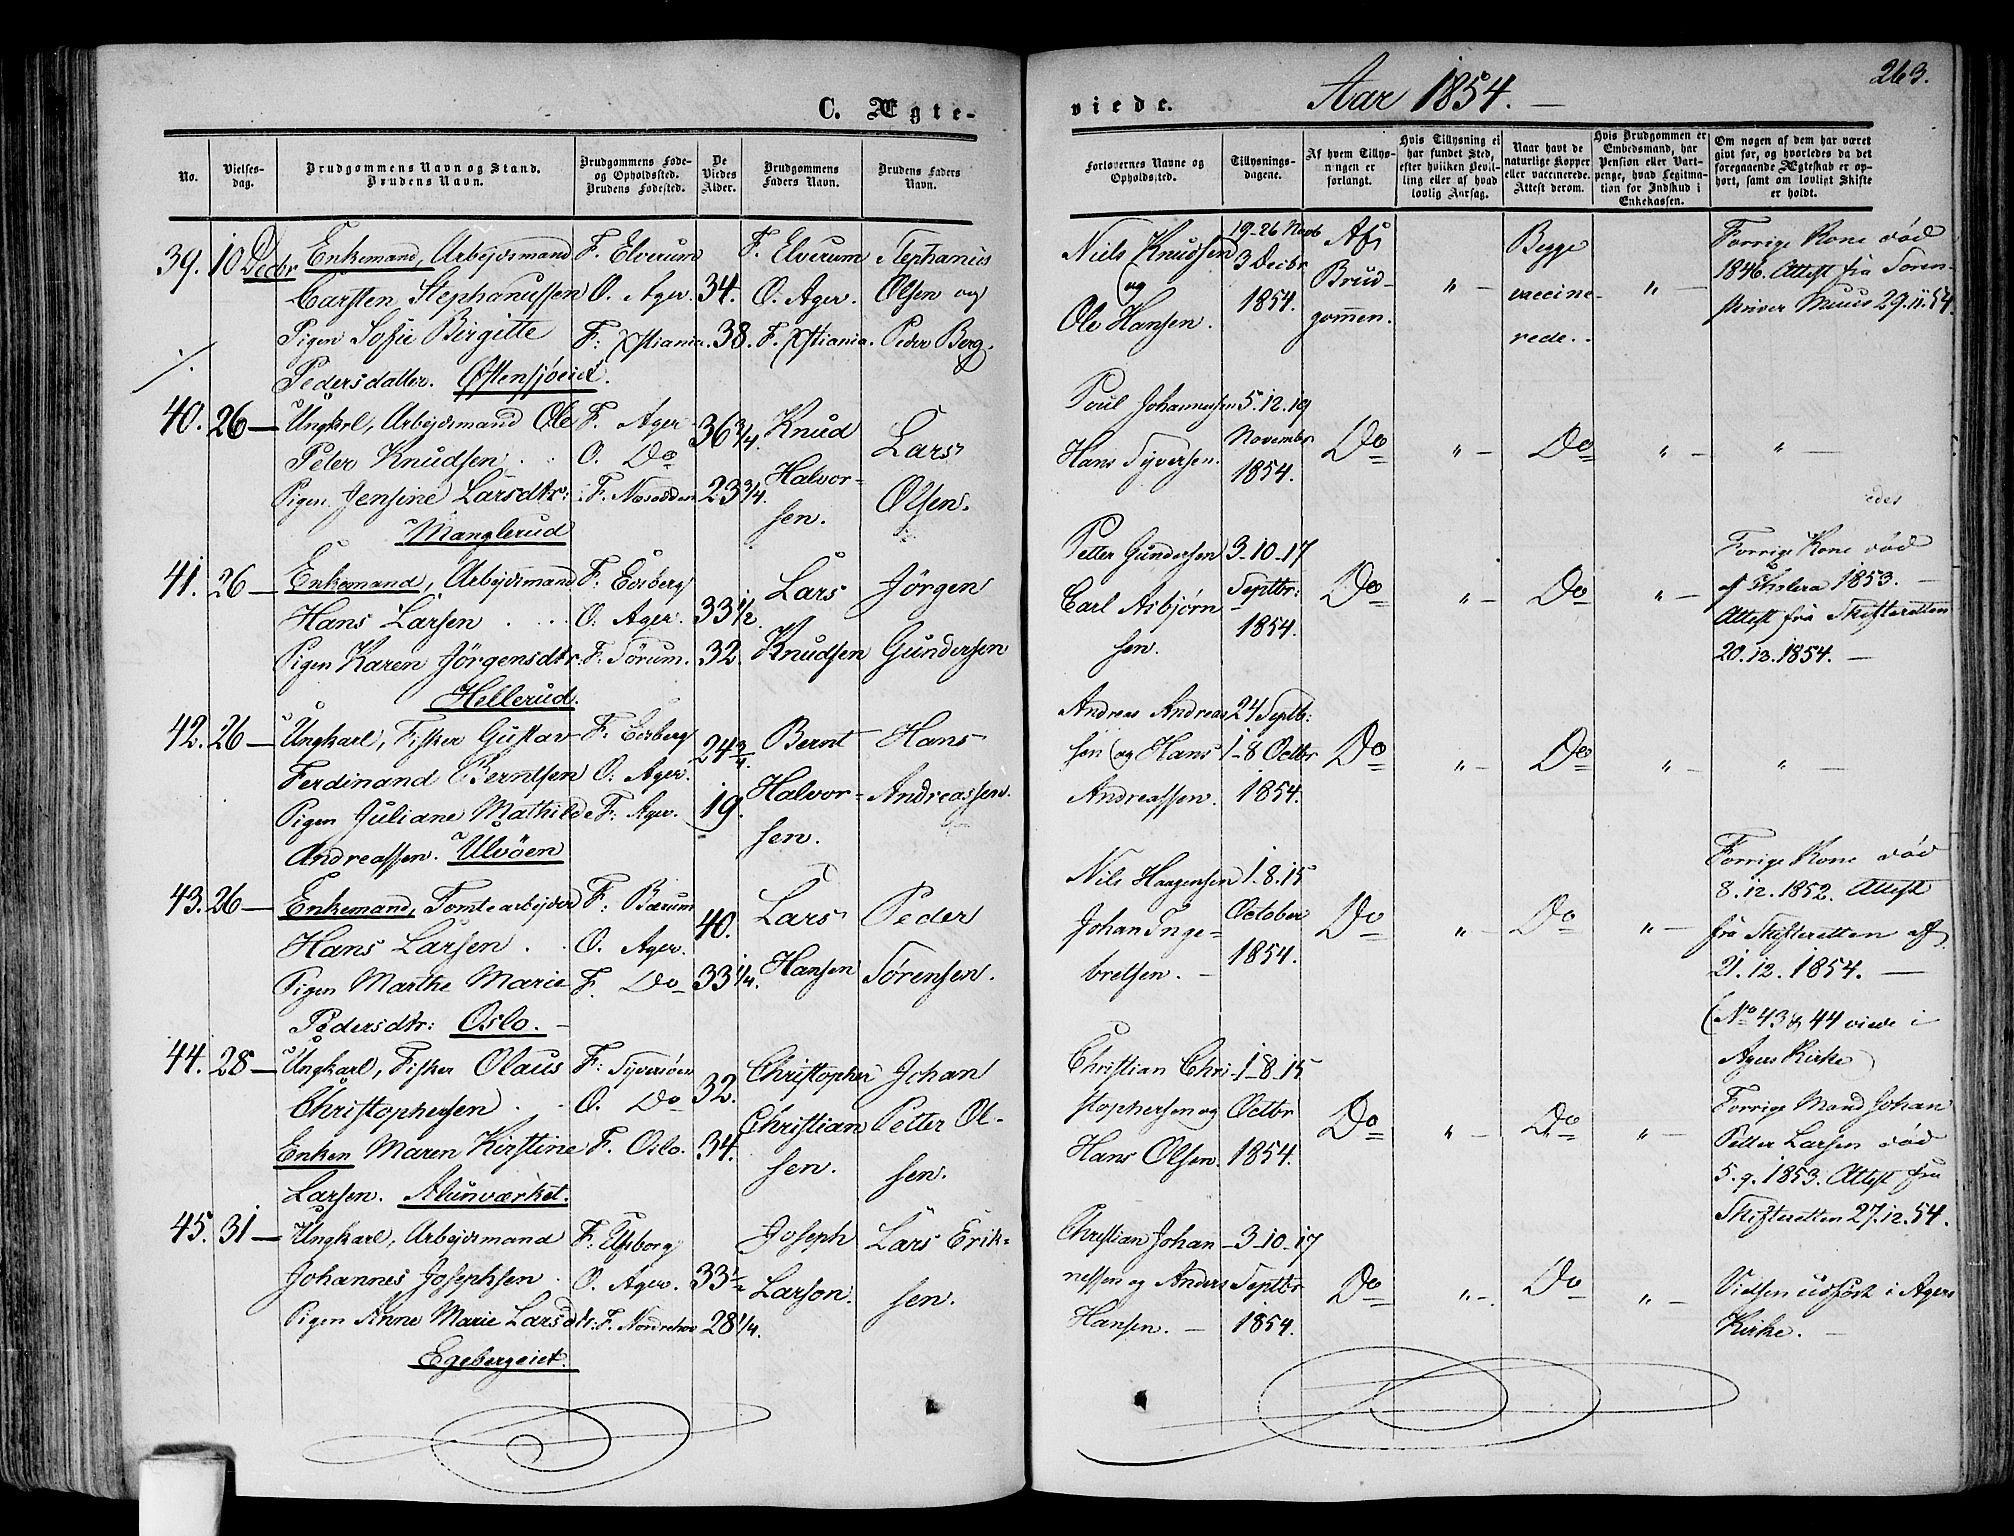 263.
C. Ægte-
viede.
Aar 1854. —
No.
Vielses-
dag.
Brudgommens Navn og Stand.
Brudens Navn.
Brudgommens Føde-
og Opholdssted.
Brudens Fødested.
De
Viedes
Alder.
Brudgommens
Faders Navn.
Brudens Faders
Navn.
Forlovernes Navne og
Opholdssted.
Tillysnings-
dagene.
Af hvem Tillys-
ningen er
forlangt.
Hvis Tillysning ei
har fundet Sted,
efter hvilken Bevil-
ling eller af hvad
lovlig Aarsag.
Naar havt de
naturlige Kopper
eller vaccinerede.
Attest derom.
Hvis Brudgommen er
Embedsmand, har
Pension eller Vart-
penge, hvad Legitima-
tion for Indskud i
Enkekassen.
Om nogen af dem har været
givt før, og hvorledes da det
foregaaende Ægteskab er op-
hørt, samt om lovligt Skifte
er holdt.
39. 10 Decbr
Enkemand, Arbejdsmand
Carsten Stephanussen
Pigen Sofie Birgitte
Pedersdatter. Østensjøeiet.
F. Elverum
O. Ager.
F: Xstiania.
34.
38.
F. Elverum
O. Ager.
F. Xstiania.
Stephanus
Olsen og
Peder Berg.
Niels Knudsen
og
Ole Hansen.
19-26 Novb
3 Decbr
1854.
Af
Brud-
gommen.
" —
Begge
vaccine-
rede.
" —
Forrige Kone død
1846. Attest fra Soren-
skriver Muus 29.11.54.
40. 26 —
Ungkarl, Arbejdsmand Ole
Peter Knudsen
Pigen Jensine Larsdtr:
Manglerud
F. Ager
O. Do
F. Næsodden
36 3/4
23 3/4.
Knud
Halvor-
sen.
Lars
Olsen.
Poul Johannesen
Hans Syversen.
5.12.19
Novembr
1854.
Do
" —
Do
" —
" —
41. 26 —
Enkemand, Arbejdsmand
Hans Larsen
Pigen Karen Jörgensdtr.
Hellerud.
F. Eidsberg
O. Ager.
F. Sörum.
33 1/2
32.
Lars
Knudsen
Jörgen
Gundersen
Petter Gundersen
Carl Asbjørn
sen.
3-10-17
Septbr:
1854.
Do
" —
Do
" —
Forrige Kone død
af Cholera 1853. —
Attest fra Skifteretten
20.12.1854. —
42. 26 —
Ungkarl, Fisker Gustav
Ferdinand Berntsen
Pigen Juliane Mathilde
Andreassen. Ulvöen
F. Eidsberg
O. Ager.
F. Ager.
24 3/4.
19.
Bernt
Halvor-
sen.
Hans
Andreassen.
Andreas Andreas
sen og Hans
Andreassen.
24 Septb:
1-8 Octbr
1854.
Do
" —
Do
" —
" —
43. 26 —
Enkemand, Tomtearbejder
Hans Larsen
Pigen Marthe Marie
Pedersdtr: Oslo. —
F: Bærum
O. Ager.
F. Do
40.
33 1/4.
Lars
Hansen
Peder
Sörensen.
Nils Haagensen
Johan Inge-
bretsen. —
1.8.15
October
1854.
Do
" —
Do
" —
Forrige Kone død
8.12.1852. Attest
fra Skifteretten af
21.12.1854. —
(No 43 & 44 viede i
Agers Kirke)
44. 28 —
Ungkarl, Fisker Olaus
Christophersen
Enken Maren Kirstine
Larsen. Alunværket.
F: Syversöen
O. Do
F. Oslo.
32.
34.
Christopher
Christian
sen.
Johan
Petter Ol-
sen.
Christian Chri-
stophersen og
Hans Olsen.
1-8-15
Octbr
1854.
Do
" —
Do
" —
Forrige Mand Johan
Petter Larsen død
5.9.1853. Attest fra
Skifteretten 27.12.54.
45. 31 —
Ungkarl, Arbejdsmand
Johannes Josephsen
Pigen Anne Marie Larsdtr:
Egebergeiet.
F: Elfsborg
O. Ager.
F. Norderhov
33 1/2
28 1/4.
Joseph
Larson.
Lars Erik-
sen.
Christian Johan
nessen og Anders
Hansen. —
3-10-17
Septbr
1854.
Do
" —
Do
" —
Vielsen udført i Agers
Kirke. —